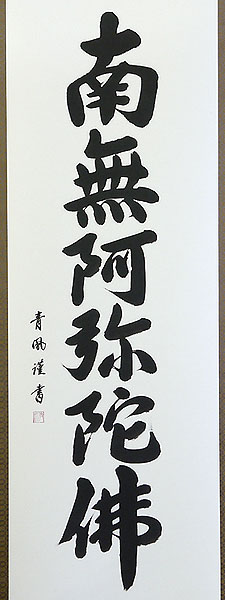 南無阿弥陀佛
青風謹書